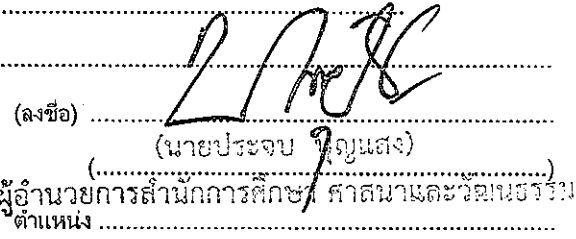 (ลงชื่อ)
(นายประจบ
(..........)
ผู้อำนวยการสำนักการศึกษา ศาสนาและวัฒนธรรม
ตำแหน่ง